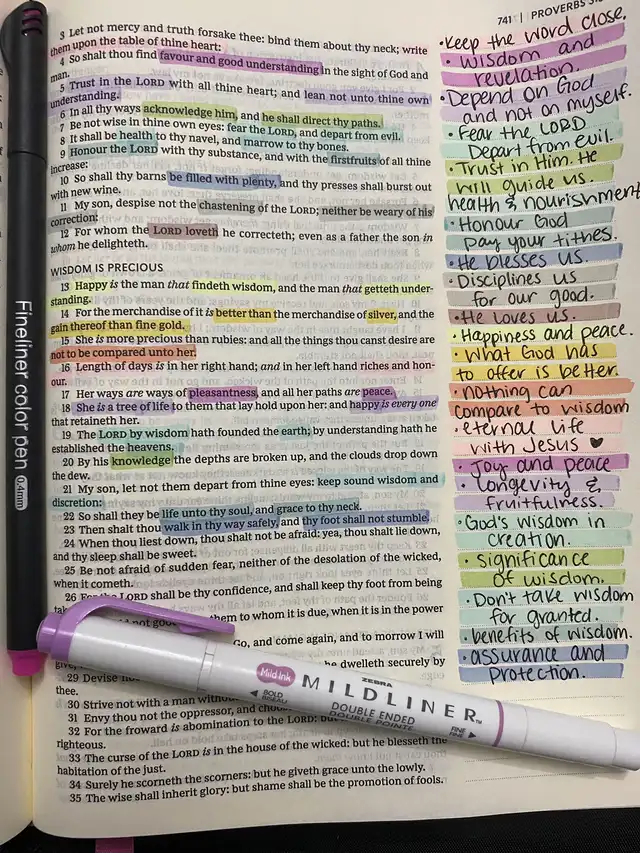 741 | PROVERBS 3:
3 Let not mercy and truth forsake thee: bind them about thy neck; write
them upon the table of thine heart:
4 So shalt thou find favour and good understanding in the sight of God and
man.
5 Trust in the LORD with all thine heart; and lean not unto thine own
understanding.
6 In all thy ways acknowledge him, and he shall direct thy paths.
7 Be not wise in thine own eyes: fear the LORD, and depart from evil.
8 It shall be health to thy navel, and marrow to thy bones.
9 Honour the LORD with thy substance, and with the firstfruits of all thine
increase:
10 So shall thy barns be filled with plenty, and thy presses shall burst out
with new wine.
11 My son, despise not the chastening of the LORD; neither be weary of his
correction:
12 For whom the LORD loveth he correcteth; even as a father the son in
whom he delighteth.
WISDOM IS PRECIOUS
13 Happy is the man that findeth wisdom, and the man that getteth under-
standing.
14 For the merchandise of it is better than the merchandise of silver, and the
gain thereof than fine gold.
15 She is more precious than rubies: and all the things thou canst desire are
not to be compared unto her.
16 Length of days is in her right hand; and in her left hand riches and hon-
our.
17 Her ways are ways of pleasantness, and all her paths are peace.
18 She is a tree of life to them that lay hold upon her: and happy is every one
that retaineth her.
19 The LORD by wisdom hath founded the earth; by understanding hath he
established the heavens.
20 By his knowledge the depths are broken up, and the clouds drop down
the dew.
21 My son, let not them depart from thine eyes: keep sound wisdom and
discretion:
22 So shall they be life unto thy soul, and grace to thy neck.
23 Then shalt thou walk in thy way safely, and thy foot shall not stumble.
24 When thou liest down, thou shalt not be afraid: yea, thou shalt lie down,
and thy sleep shall be sweet.
25 Be not afraid of sudden fear, neither of the desolation of the wicked,
when it cometh.
26 For the LORD shall be thy confidence, and shall keep thy foot from being
not good them to whom it is due, when it is in the power
Go, and come again, and to morrow I will
give,
29 Devise he dwelleth securely by
thee.
30 Strive not with a man
31 Envy thou not the oppressor, and
32 For the froward is abomination to the LORD:
righteous.
33 The curse of the LORD is in the house of the wicked: but he blesseth the
habitation of the just.
34 Surely he scorneth the scorners: but he giveth grace unto the lowly.
35 The wise shall inherit glory: but shame shall be the promotion of fools.
• Keep the word close.
• Wisdom and
revelation.
• Depend on God
and not on myself.
• Fear the LORD
Depart from evil.
• Trust in Him. He
will guide us.
health & nourishment
• Honour God
pay your tithes.
• He blesses us.
• Disciplines us
for our good.
• He loves us.
• Happiness and peace.
• What God has
to offer is better.
• nothing can
compare to wisdom
• eternal life
with Jesus ♥
• Joy and peace
• longevity &
fruitfulness.
• God's wisdom in
creation.
• significance
of wisdom.
• Don't take wisdom
for granted.
• benefits of wisdom.
• assurance and
protection.
Fineliner color pen 0.4mm
Mild Ink
ZEBRA
MILDLINER™
DOUBLE ENDED
DOUBLE POINTE
BOLD
BISEAU
FINE
FINE